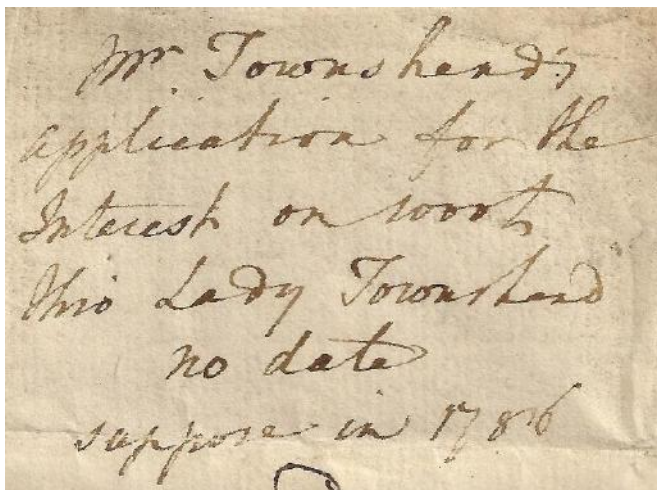 Mr Townshend's
application for the
Interest on 1000£
thro Lady Townshend
no date
suppose in 1786